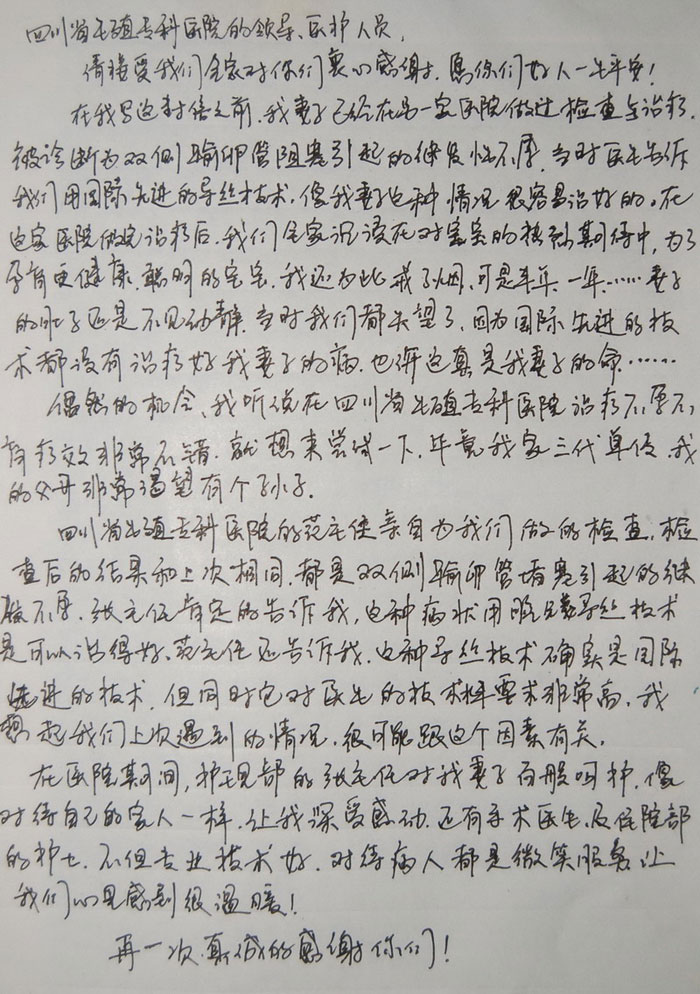 四川省生殖专科医院的领导、医护人员，
请接受我们全家对你们衷心感谢，愿你们好人一生平安！
在我写这封信之前，我妻子已经在另一家医院做过检查与治疗，
被诊断为双侧输卵管阻塞引起的继发性不孕，当时医生告诉
我们用国际先进的导丝技术，像我妻子这种情况很容易治好的。在
这家医院做完治疗后，我们全家沉浸在对宝宝的热烈期待中，为了
孕育更健康、聪明的宝宝，我还为此戒了烟，可是半年、一年……妻子
的肚子还是不见动静，当时我们都失望了，因为国际先进的技
术都没有治疗好我妻子的病，也许这真是我妻子的命……
偶然的机会，我听说在四川省生殖专科医院治疗不孕不
育疗效非常不错，就想来尝试一下，毕竟我家三代单传，我
的父母非常渴望有个孙子。
四川省生殖专科医院的范主任亲自为我们做的检查，检
查后的结果和上次相同，都是双侧输卵管堵塞引起的继
发不孕，张主任肯定的告诉我，这种病状用导丝技术
是可以治得好，范主任还告诉我，这种导丝技术确实是国际
先进的技术，但同时它对医生的技术要求非常高，我
想起我们上次遇到的情况，很可能跟这个因素有关。
在医院期间，护理部的张主任对我妻子百般呵护，像
对待自己的家人一样，让我深受感动，还有手术医生及住院部
的护士，不但专业技术好，对待病人都是微笑服务，让
我们心里感到很温暖！
再一次真诚的感谢你们！